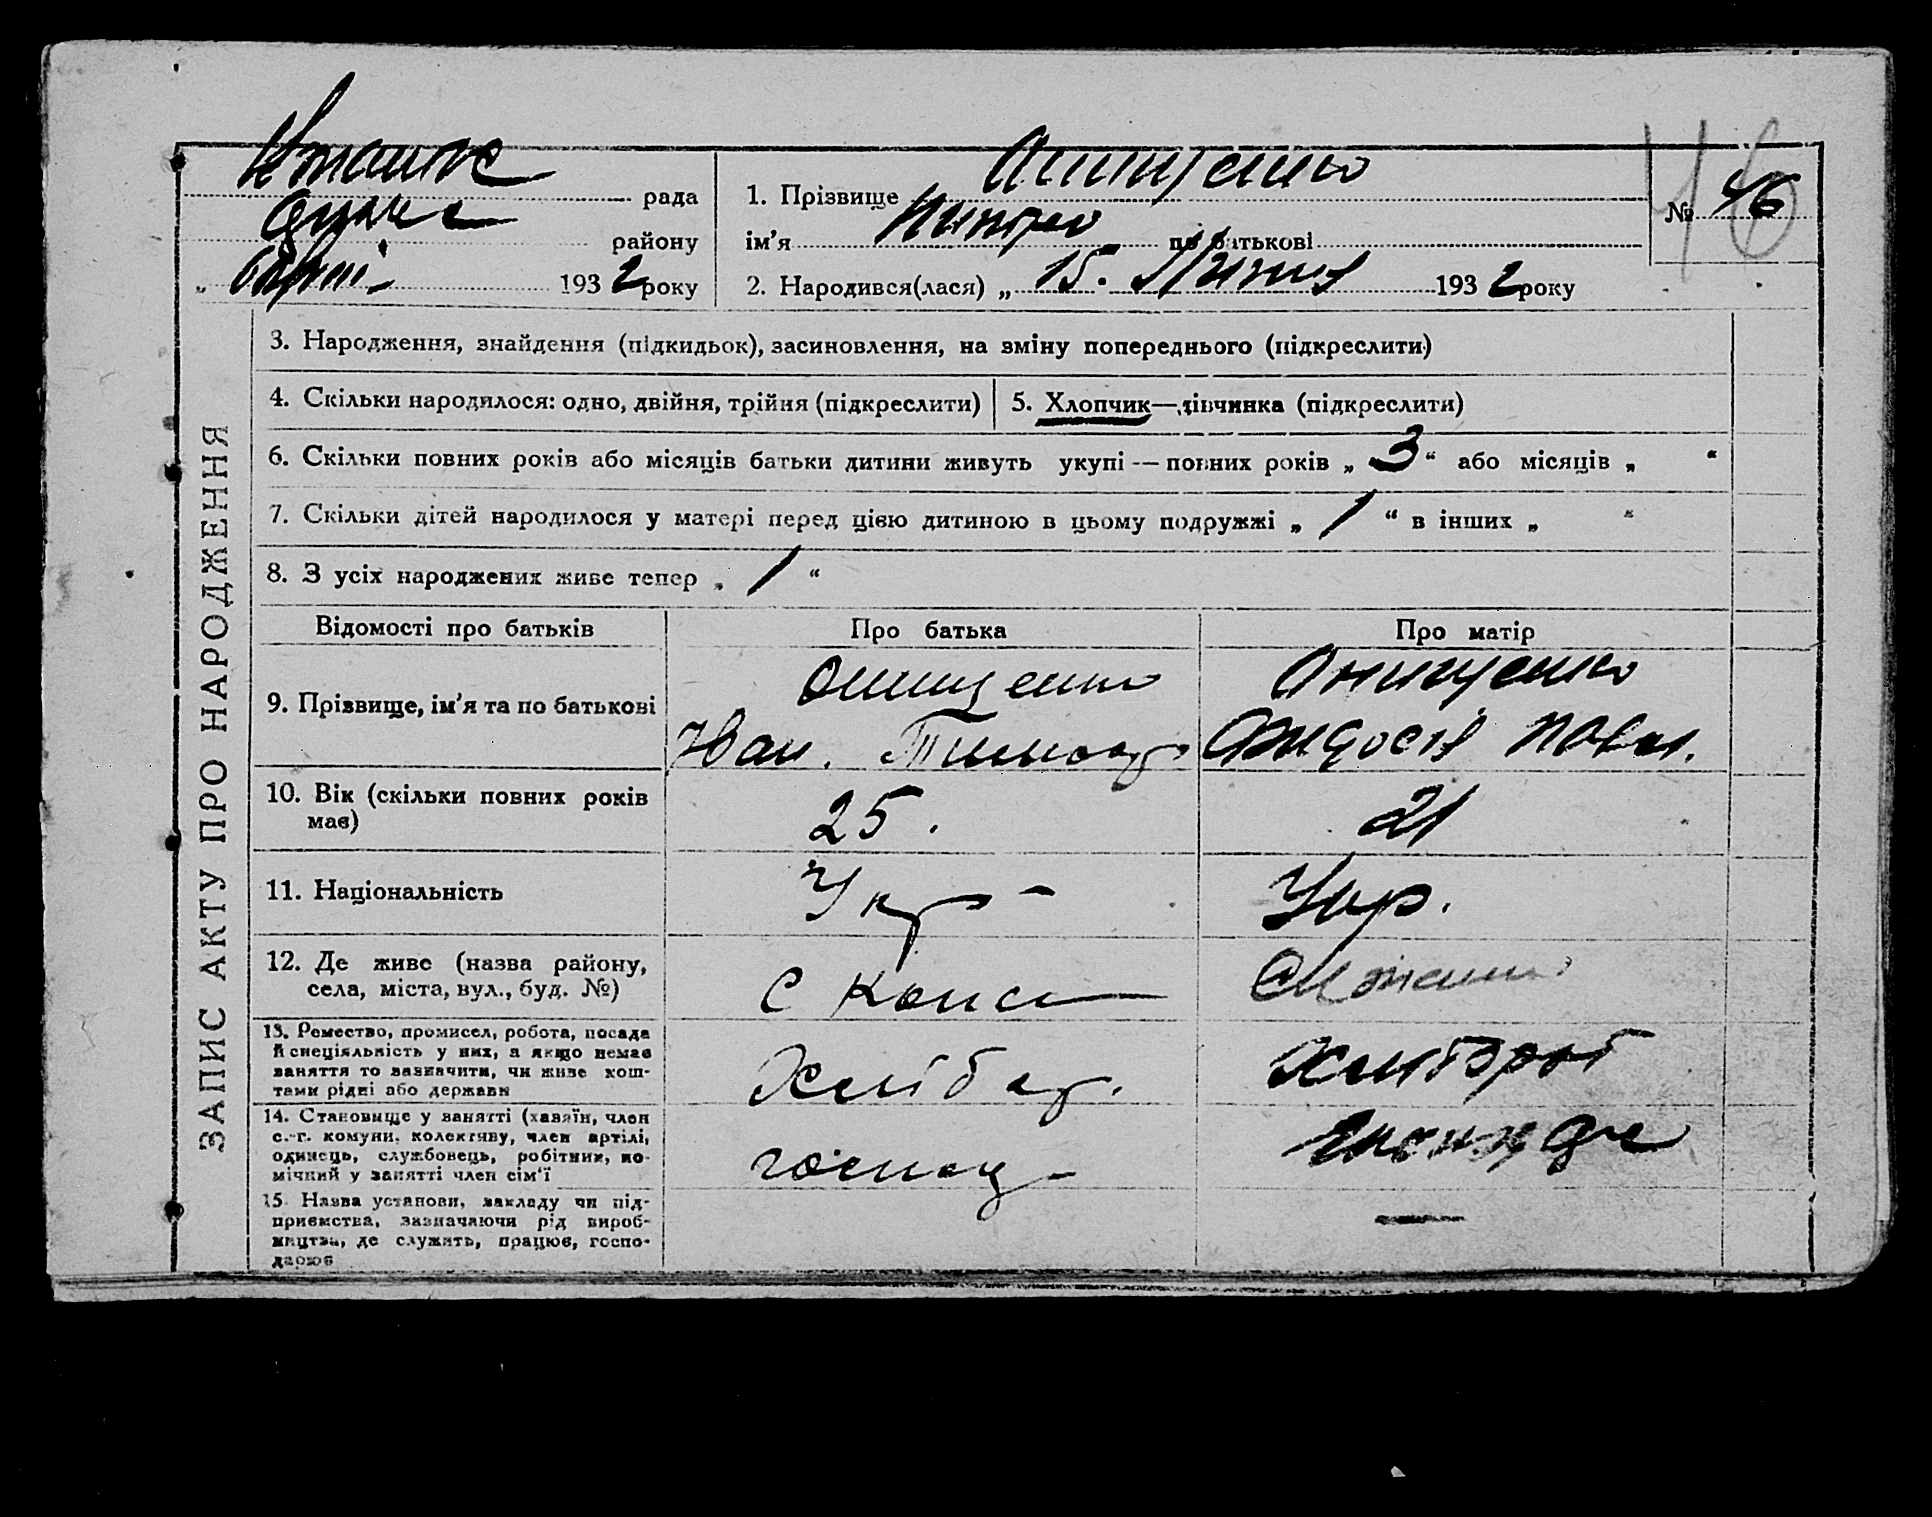 рада
району
193 2 року
1. Прізвище Онищенко
ім'я по батькові
2. Народився(лася) „ 15. 193 2 року
№ 46
46
ЗАПИС АКТУ ПРО НАРОДЖЕННЯ
3. Народження, знайдення (підкидьок), засиновлення, на зміну попереднього (підкреслити)
4. Скільки народилося: одно, двійня, трійня (підкреслити)
5. Хлопчик—дівчинка (підкреслити)
6. Скільки повних років або місяців батьки дитини живуть укупі — повних років „ 3 “ або місяців „ “
7. Скільки дітей народилося у матері перед цією дитиною в цьому подружжі „ 1 “ в інших „ “
8. З усіх народжених живе тепер „ 1 “
Відомості про батьків
Про батька
Про матір
9. Прізвище, ім'я та по батькові
Онищенко
Іван.
Онищенко
Павл.
10. Вік (скільки повних років
має)
25.
21
11. Національність
Укр -
Укр.
12. Де живе (назва району,
села, міста, вул., буд. №)
с
13. Ремество, промисел, робота, посада
й спеціяльність у них, а якщо немає
заняття то зазначити, чи живе кош-
тами рідні або держави
Хлібор.
Хлібороб
14. Становище у занятті (хазяїн, член
с.-г. комуни, колективу, член артілі,
одинець, службовець, робітник, по-
мічний у занятті член сім'ї
господ-
15. Назва установи, закладу чи під-
приємства, зазначаючи рід вироб-
ництва, де служить, працює, госпо-
дарює
—